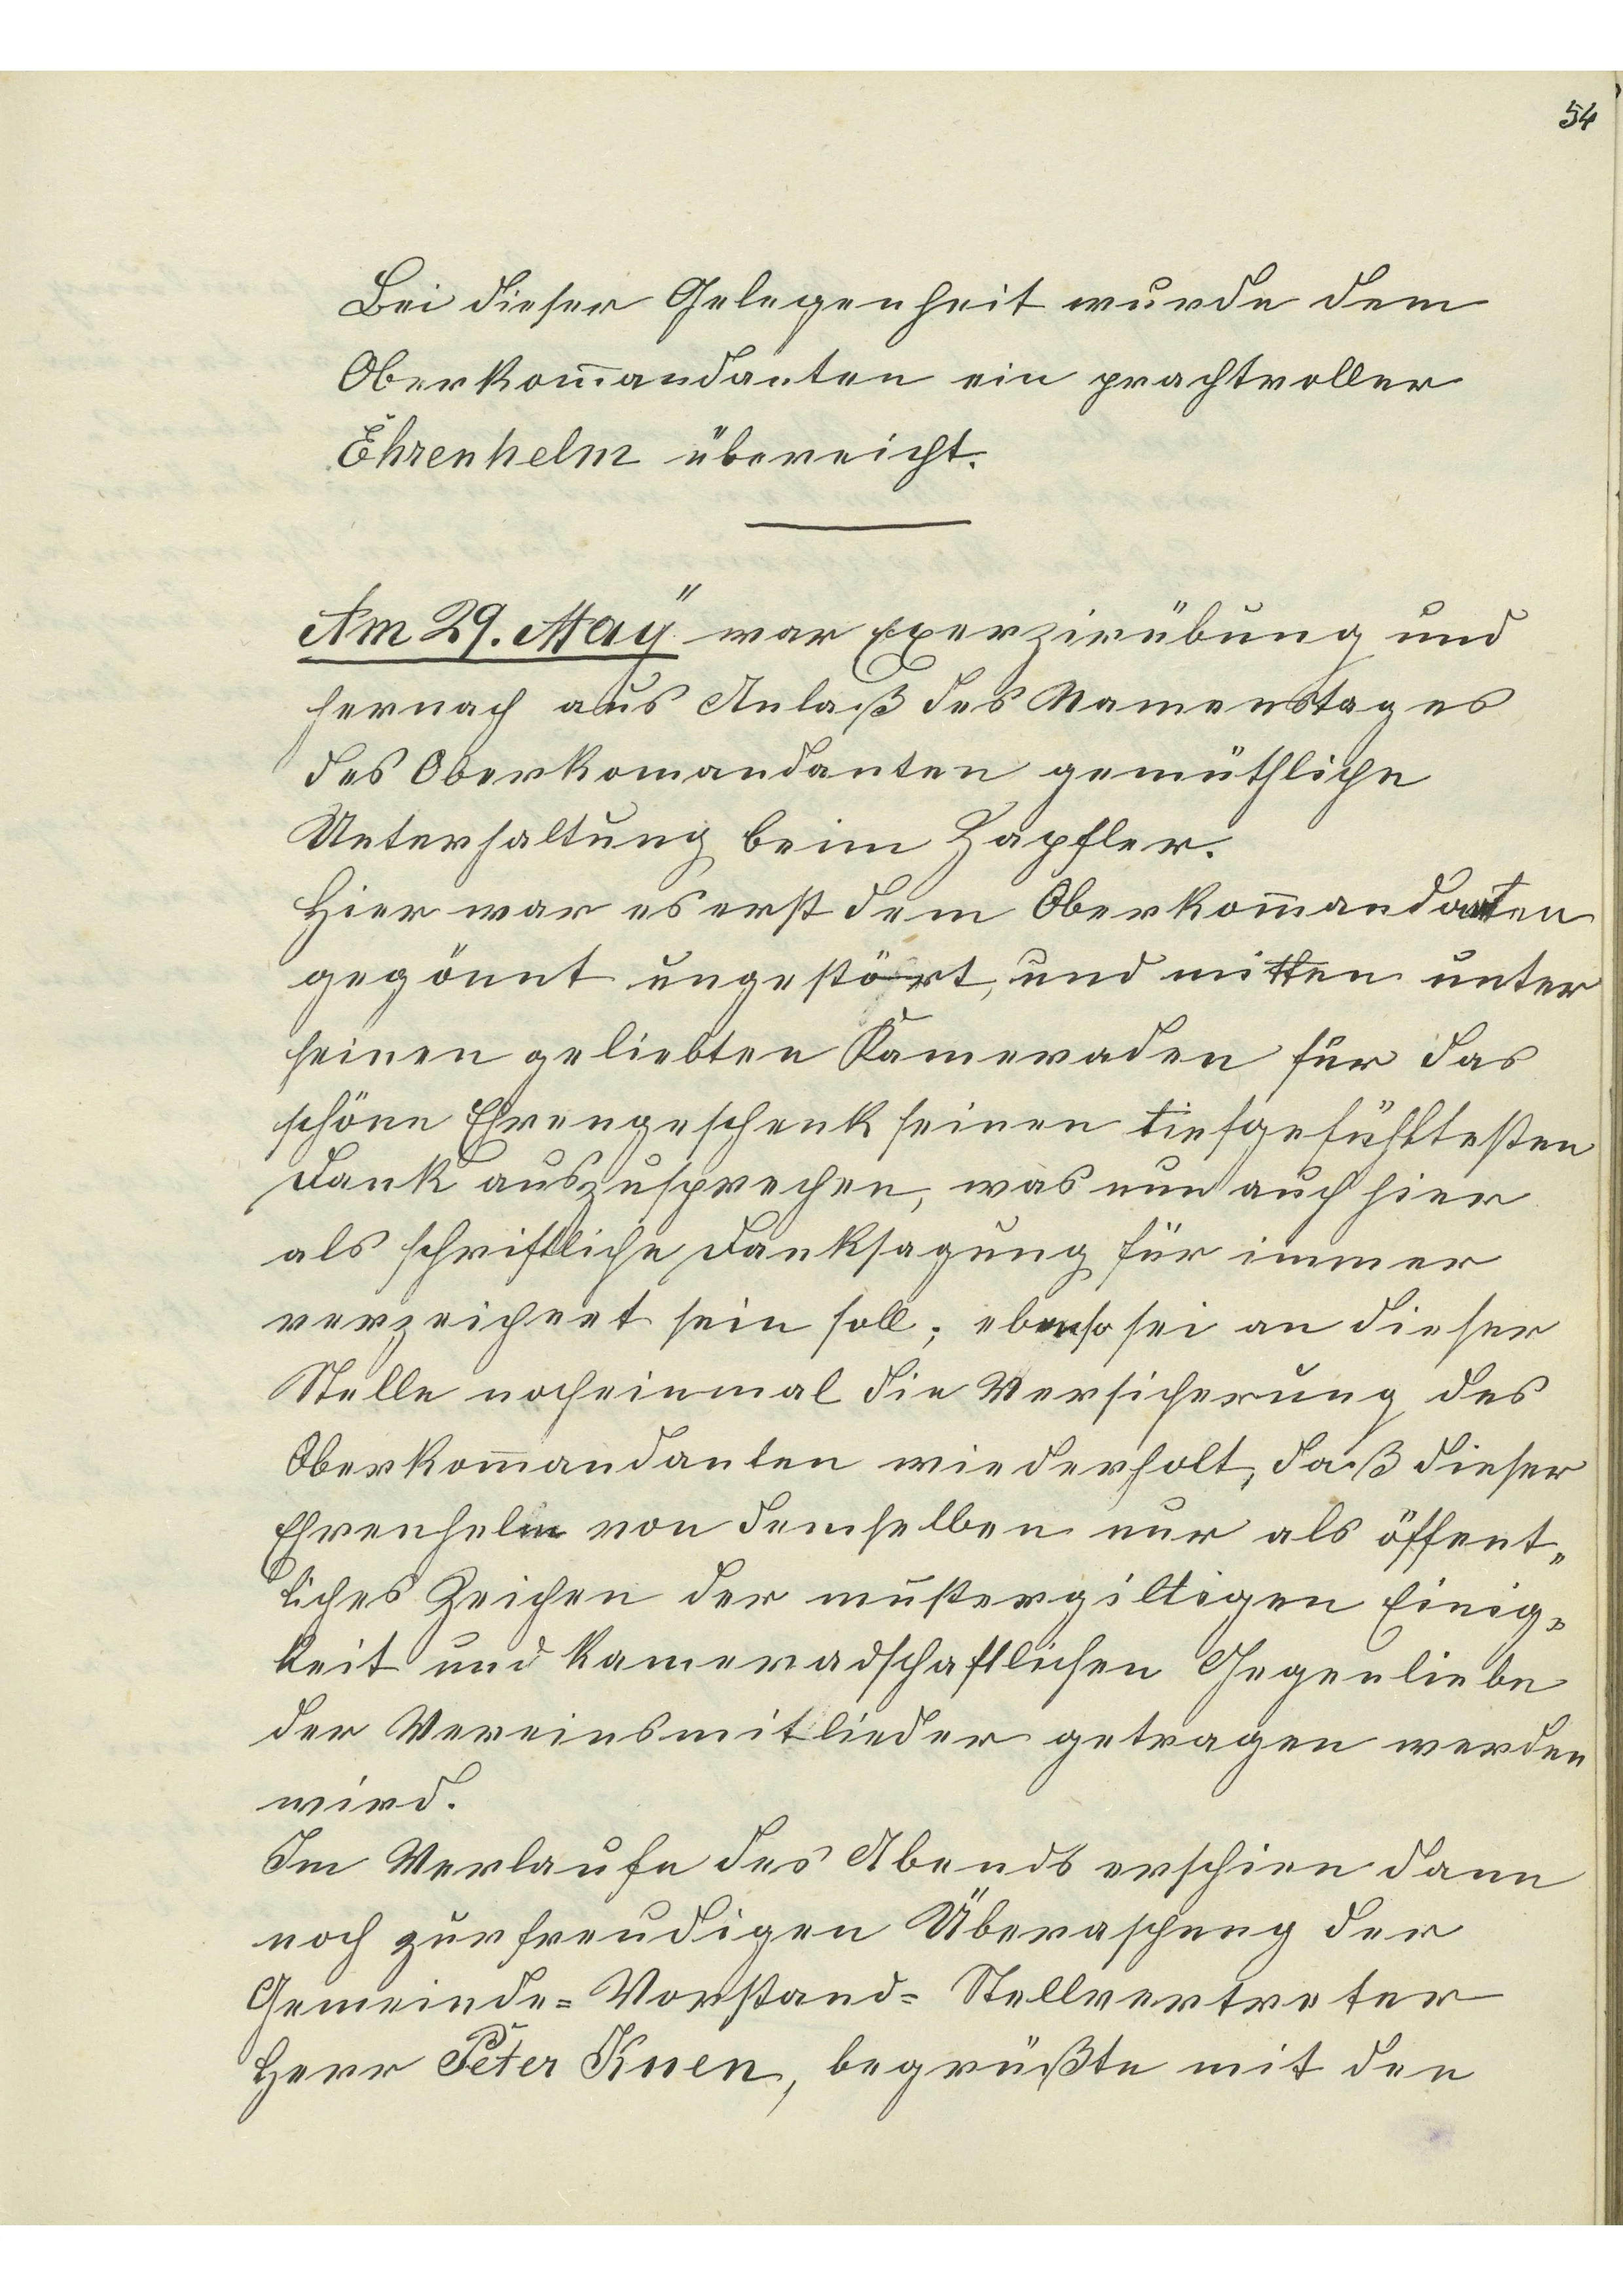 54
Bei dieser Gelegenheit wurde dem
Oberkom̄andanten ein prachtvoller
Ehrenhelm übereicht.
Am 29. May" war Exerzirübung und
hernach aus Anlaß des Namenstages
des Oberkomandanten gemüthliche
Unterhaltung beim Zapfler.
Hier war es erst dem Oberkom̄andanten
gegönnt ungestört, und mitten unter
seinen geliebten Kameraden für das
schöne Ehrengeschenk seinen tiefgefühltesten
Dank auszusprechen, was nun auch hier
als schriftliche Danksagung für immer
verzeichnet sein soll; ebenso sei an dieser
Stelle nocheinmal die Versicherung des
Oberkom̄andanten wiederholt, daß dieser
Ehrenhelm von demselben nur als öffent„
liches Zeichen der mustergiltigen Einig„
keit und kameradschaftlichen Gegenliebe
der Vereinsmitlieder getragen werden
wird.
Im Verlaufe des Abends erschien dann
noch zur freudigen Überaschung der
Gemeinde=Vorstand=Stellvertreter
Herr Peter Knen, begrüßte mit den